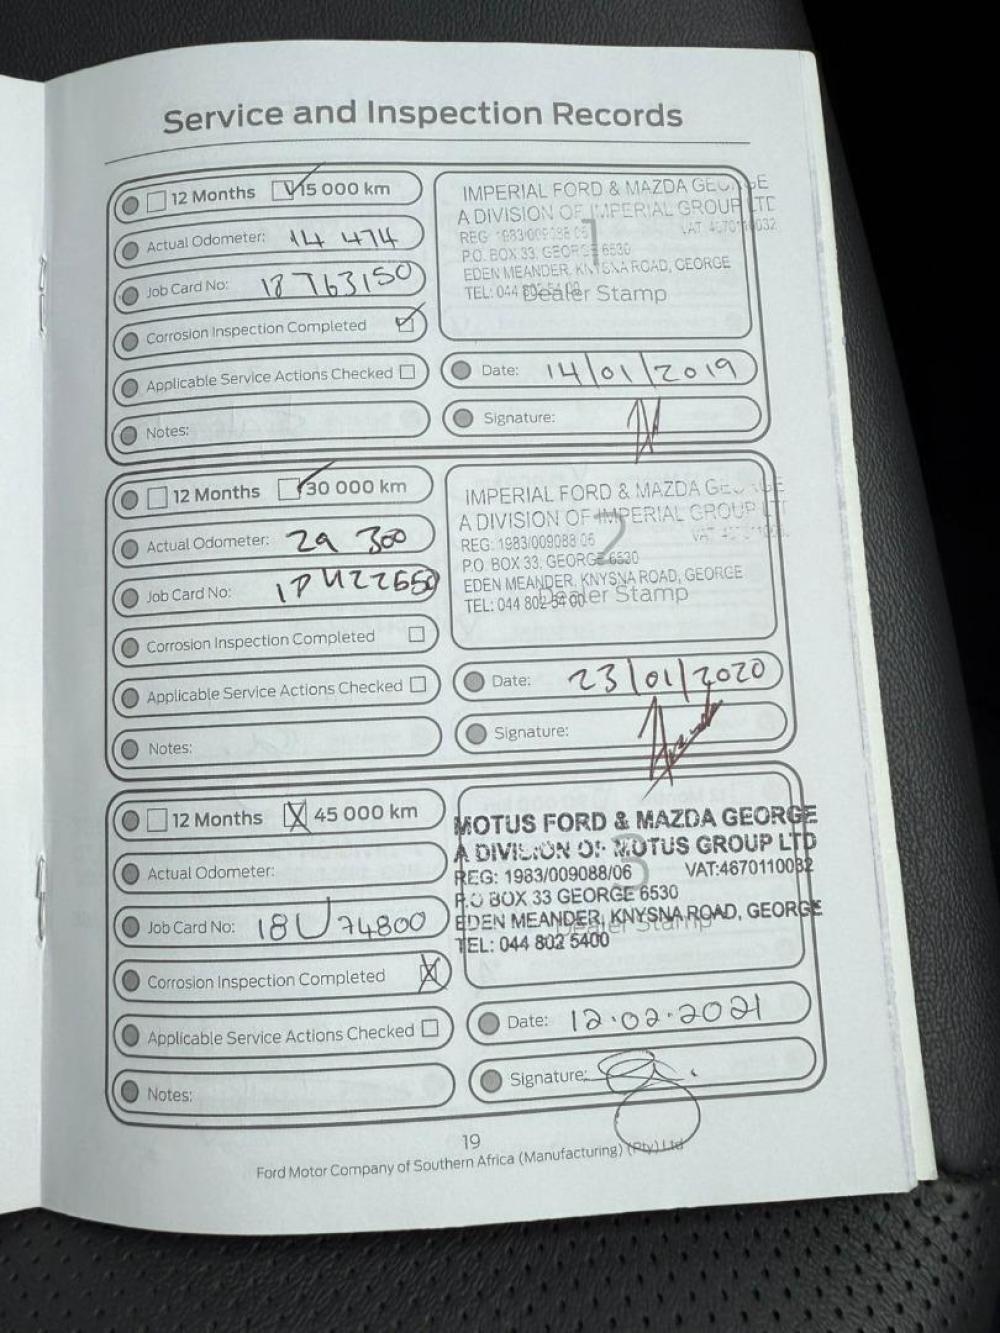 Service and Inspection Records
12 Months 15 000 km
Actual Odometer: 14 474
Job Card No: 18T63150
Corrosion Inspection Completed
Applicable Service Actions Checked
Notes:
IMPERIAL FORD & MAZDA GEORGE
A DIVISION OF IMPERIAL GROUP LTD
REG: 1983/009088/06 VAT:
P.O. BOX 33, GEORGE 6530
EDEN MEANDER, KNYSNA ROAD, GEORGE
TEL: 044
1
Dealer Stamp
Date: 14/01/2019
Signature:
12 Months 30 000 km
Actual Odometer: 29 300
Job Card No:
Corrosion Inspection Completed
Applicable Service Actions Checked
Notes:
IMPERIAL FORD & MAZDA GEORGE
A DIVISION OF IMPERIAL GROUP LTD
REG: 1983/009088 06 VAT:
P.O. BOX 33, GEORGE 6530
EDEN MEANDER, KNYSNA ROAD, GEORGE
TEL: 044 802 5400
2
Dealer Stamp
Date: 23/01/2020
Signature:
12 Months 45 000 km
Actual Odometer:
Job Card No: 18U74800
Corrosion Inspection Completed
Applicable Service Actions Checked
Notes:
MOTUS FORD & MAZDA GEORGE
A DIVISION OF MOTUS GROUP LTD
REG: 1983/009088/06 VAT:4670110032
P.O BOX 33 GEORGE 6530
EDEN MEANDER, KNYSNA ROAD, GEORGE
TEL: 044 802 5400
3
Dealer Stamp
Date: 12.02.2021
Signature:
19
Ford Motor Company of Southern Africa (Manufacturing) (Pty) Ltd